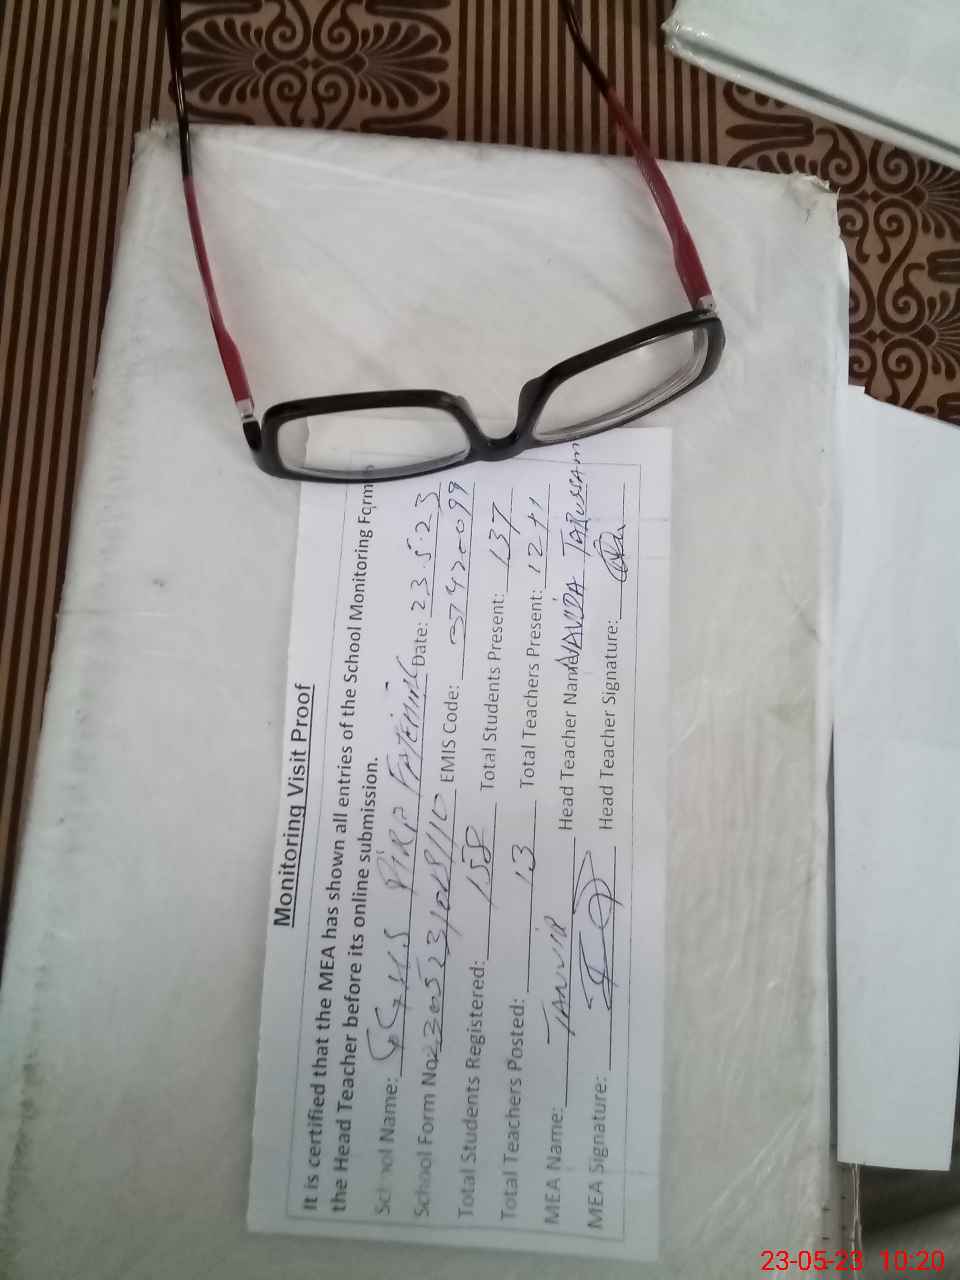 Monitoring Visit Proof
It is certified that the MEA has shown all entries of the School Monitoring Form
the Head Teacher before its online submission.
School Name: GGHS Date: 23.5.23
School Form No. EMIS Code: 37420099
Total Students Registered: 158 Total Students Present: 137
Total Teachers Posted: 13 Total Teachers Present: 12+1
MEA Name: TANVIR Head Teacher Name NAVIDA TABUSSAM
MEA Signature: Head Teacher Signature:
23-05-23 10:20